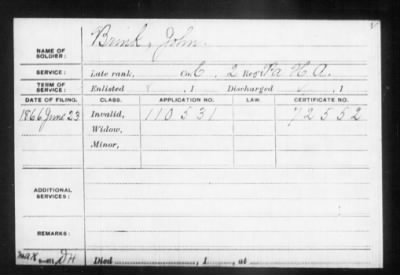 NAME OF SOLDIER: Brink, John.
SERVICE: Late rank, Co. C, 2 Reg't Pa H. A.
TERM OF SERVICE: Enlisted , 1 Discharged , 1
DATE OF FILING. CLASS. APPLICATION NO. LAW. CERTIFICATE NO.
1866 June 23 Invalid, 110531 72552
Widow,
Minor,
ADDITIONAL SERVICES:
REMARKS:
Died , 1 , at